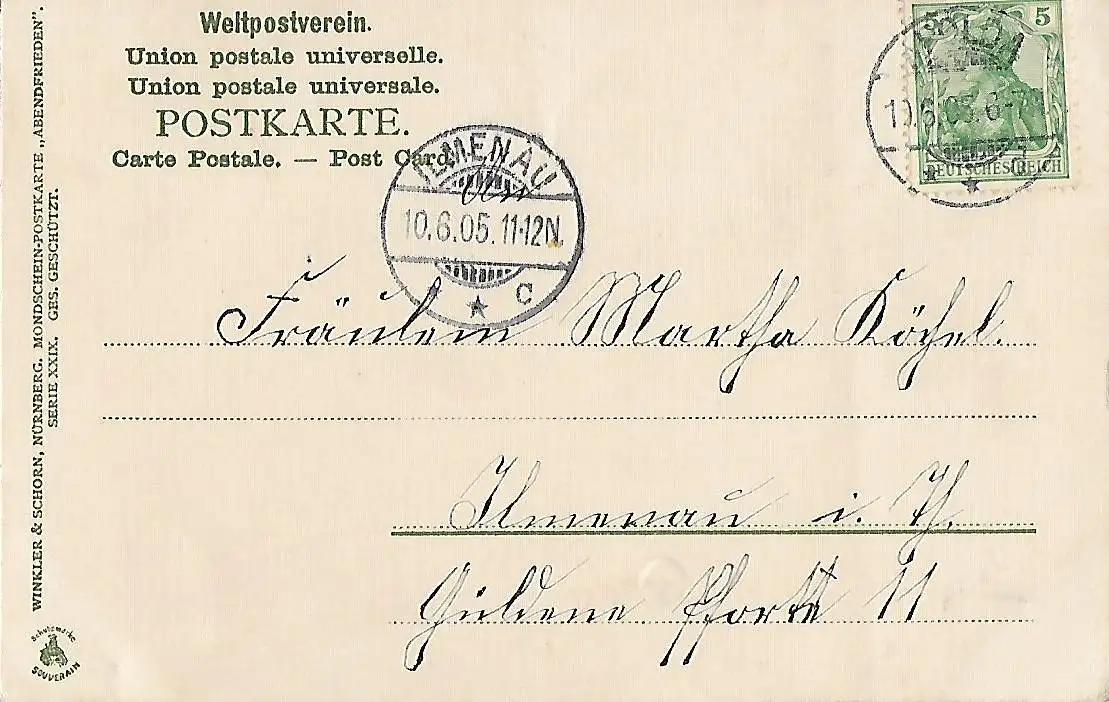 Weltpostverein.
Union postale universelle.
Union postale universale.
POSTKARTE.
Carte Postale. — Post Card.
5
DEUTSCHES REICH
APOLDA
10.6.05. 6-7
ILMENAU
10.6.05. 11-12N.
C
An
Fräulein Martha Köchel.
Ilmenau i. Th.
Güldene Pforte 11
WINKLER & SCHORN, NÜRNBERG. MONDSCHEIN-POSTKARTE „ABENDFRIEDEN".
SERIE XXIX. GES. GESCHÜTZT.
Schutzmarke
SOUVERAIN